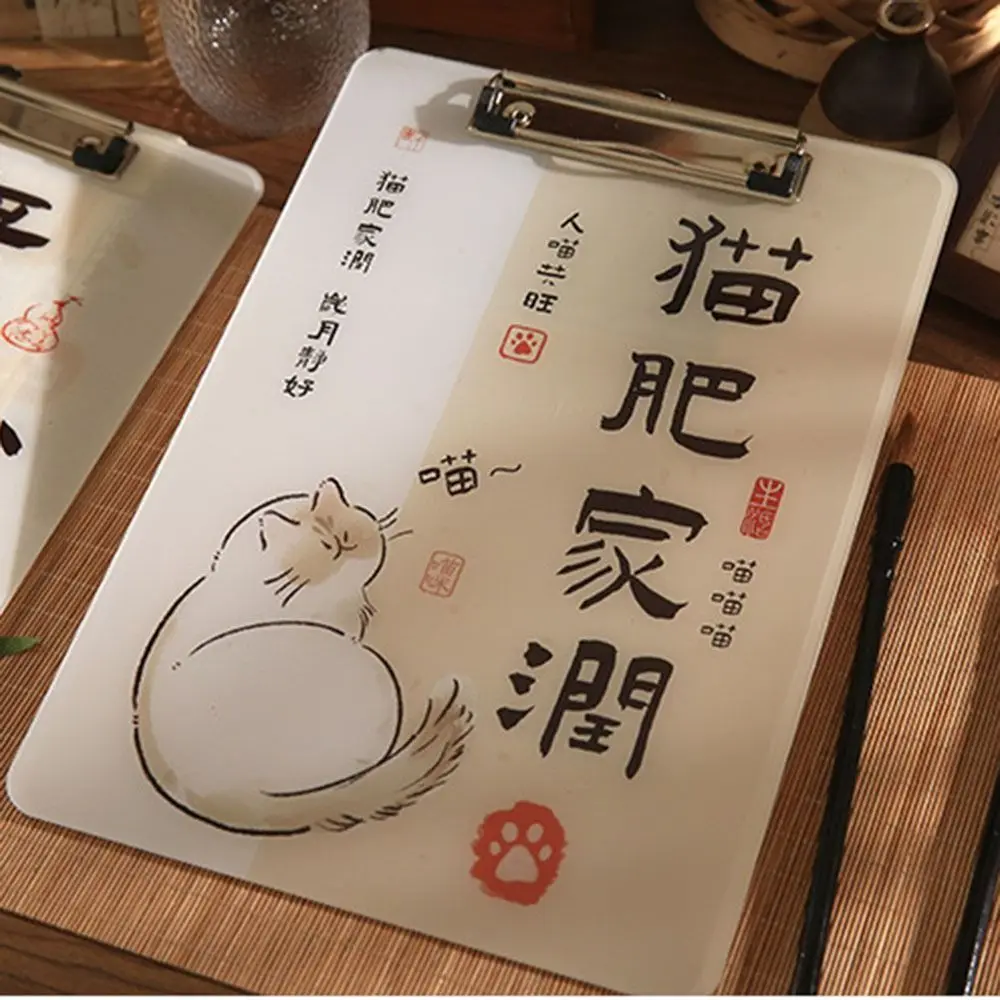 猫肥家潤
喵喵喵
人喵共旺
喵~
喵咪
猫肥家潤
月靜好